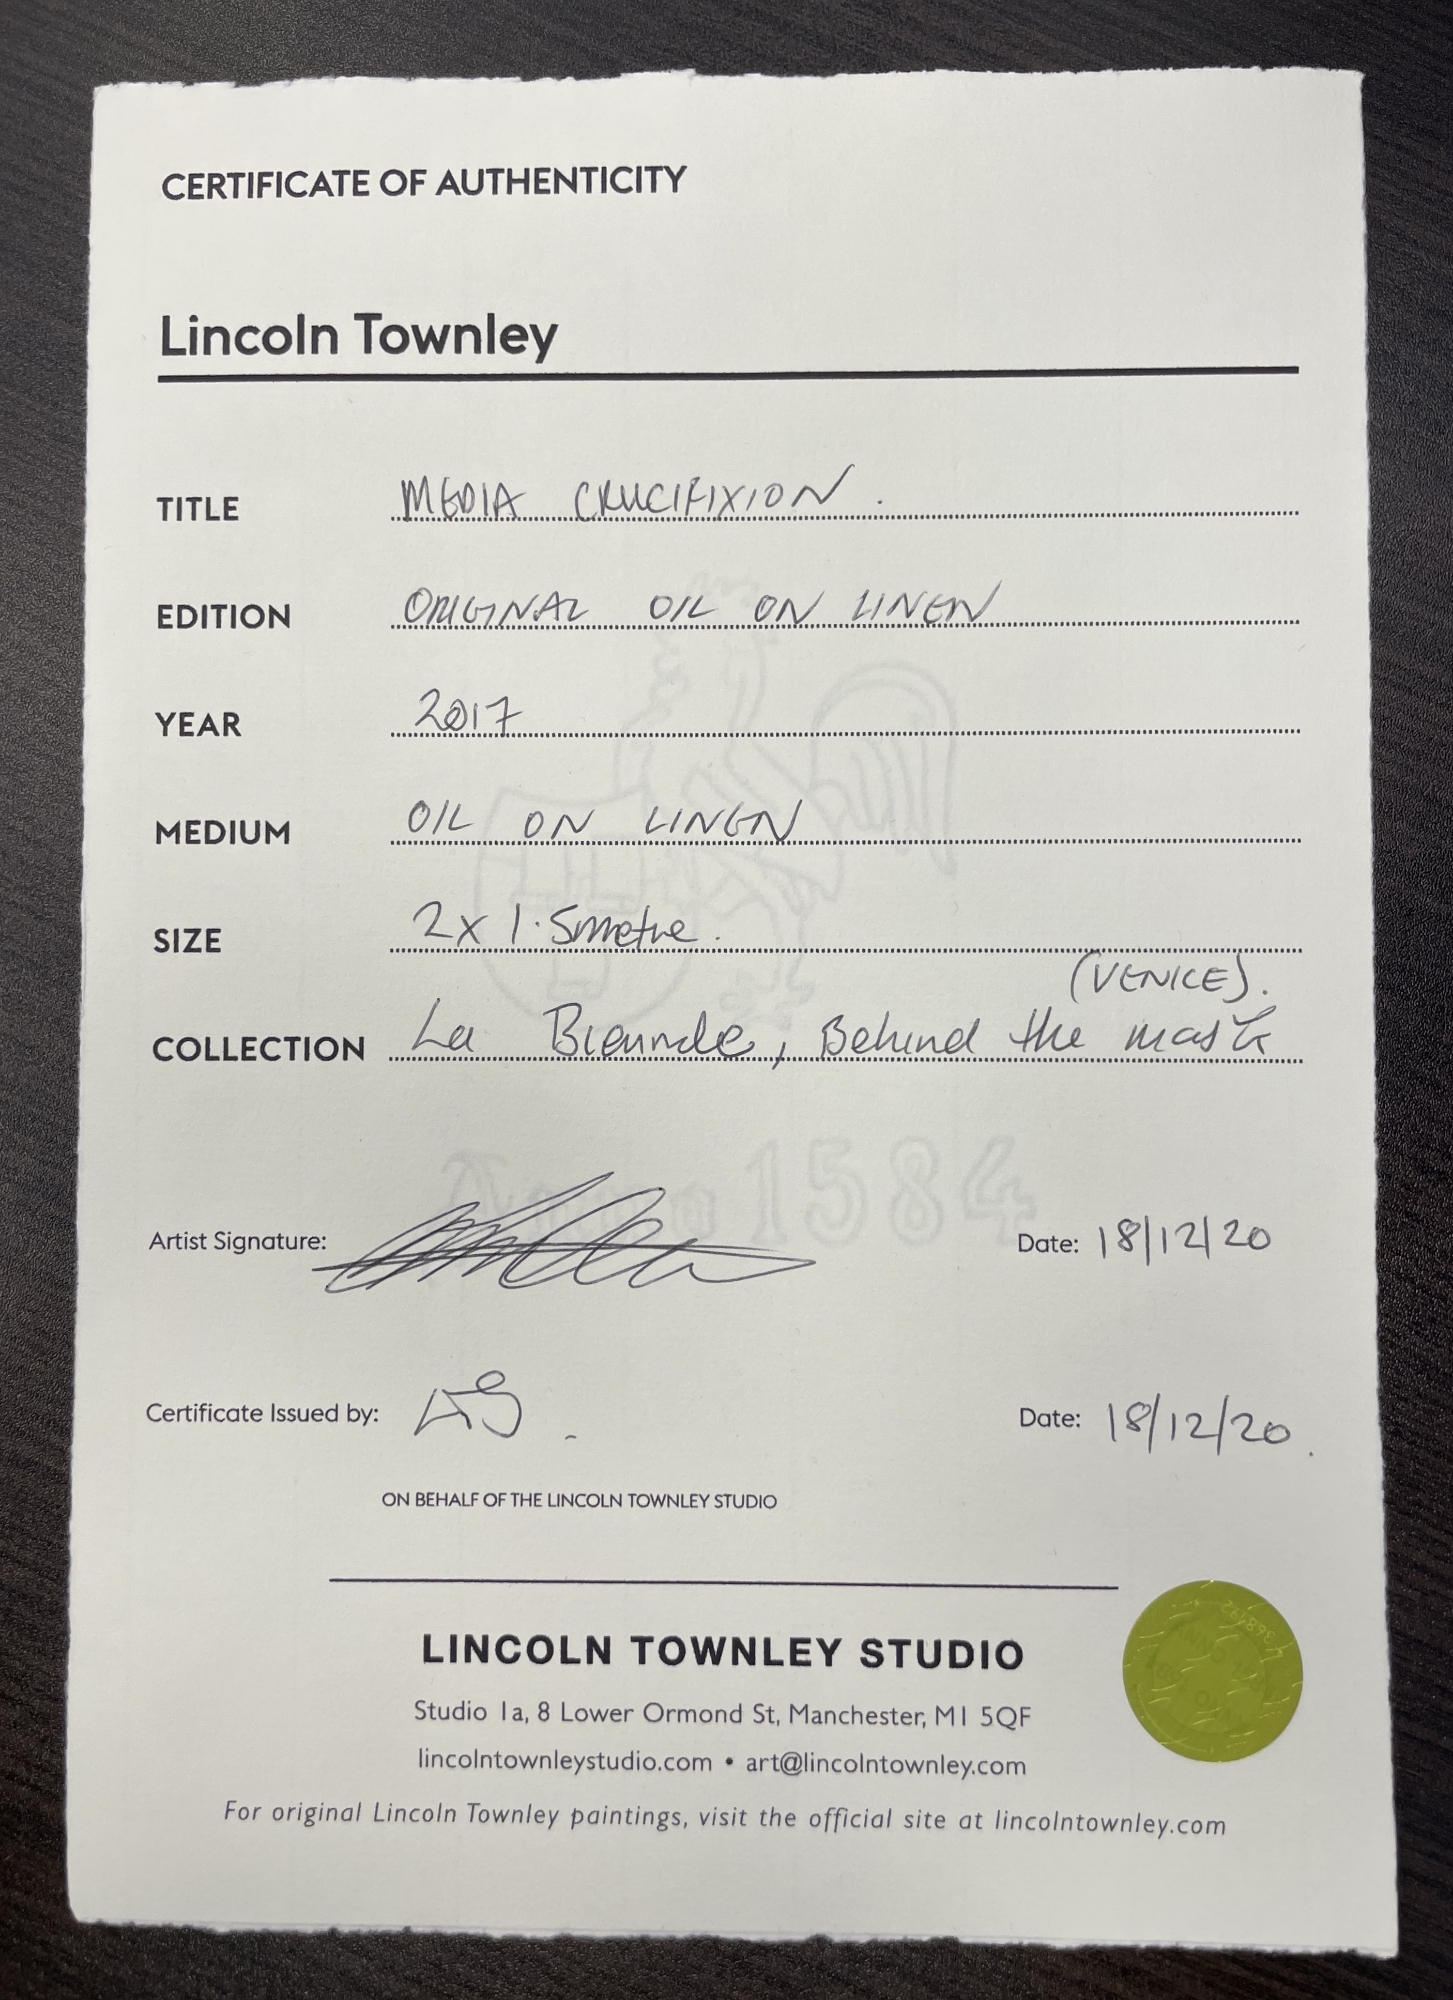 CERTIFICATE OF AUTHENTICITY
Lincoln Townley
TITLE MEDIA CRUCIFIXION.
EDITION ORIGINAL OIL ON LINEN
YEAR 2017
MEDIUM OIL ON LINEN
SIZE 2x 1.5metre.
(VENICE).
COLLECTION La Biennale, Behind the mask
Anno 1584
Artist Signature: Date: 18/12/20
Certificate Issued by: Date: 18/12/20.
ON BEHALF OF THE LINCOLN TOWNLEY STUDIO
LINCOLN TOWNLEY STUDIO
Studio 1a, 8 Lower Ormond St, Manchester, M1 5QF
lincolntownleystudio.com • art@lincolntownley.com
For original Lincoln Townley paintings, visit the official site at lincolntownley.com